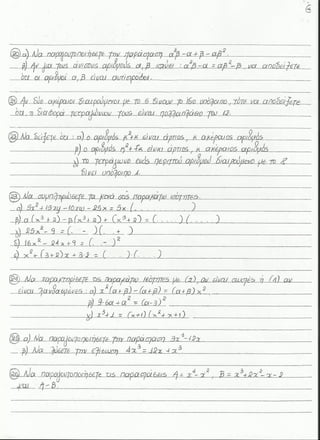 α) Να παραγοντοποιήσετε την παράσταση α²β - α + β - αβ².
β) Αν για τους άνισους αριθμούς α, β ισχύει: α²β - α = αβ² - β, να αποδείξετε
ότι οι αριθμοί α, β είναι αντίστροφοι.
21) Αν δύο ακέραιοι διαιρούμενοι με το 6 δίνουν το ίδιο υπόλοιπο, τότε να αποδείξετε
ότι η διαφορά τετραγώνων τους είναι πολλαπλάσιο του 12.
22) Να δείξετε ότι: α) ο αριθμός κ²+κ είναι άρτιος, κ ακέραιος αριθμός
β) ο αριθμός κ²+κ είναι άρτιος, κ ακέραιος αριθμός
γ) το τετράγωνο ενός περιττού αριθμού διαιρούμενο με το 8
δίνει υπόλοιπο 1.
23) Να συμπληρώσετε τα κενά στις παρακάτω ισότητες:
β) α(x³+2) - β(x³+2) + (x³+2) = (......)(......)
γ) 25x² - 9 = ( - )( + )
δ) 16x² - 24x + 9 = (.. - )²
ε) x² + (3+2)x + 3·2 = ( )( )
24) Να χαρακτηρίσετε τις παρακάτω ισότητες με (Σ), αν είναι σωστές ή (Λ) αν
είναι λανθασμένες: α) x²(α+β) - (α+β) = (α+β)x²
β) 9 - 6α + α² = (α-3)²
γ) x³+1 = (x+1)(x²+x+1)
25) α) Να παραγοντοποιήσετε την παράσταση 3x³ - 12x
β) Να λύσετε την εξίσωση 4x³ = 12x + x³
26) Να παραγοντοποιήσετε τις παραστάσεις A = x⁴ - x², B = x³ + 2x² - x - 2
και A - B.